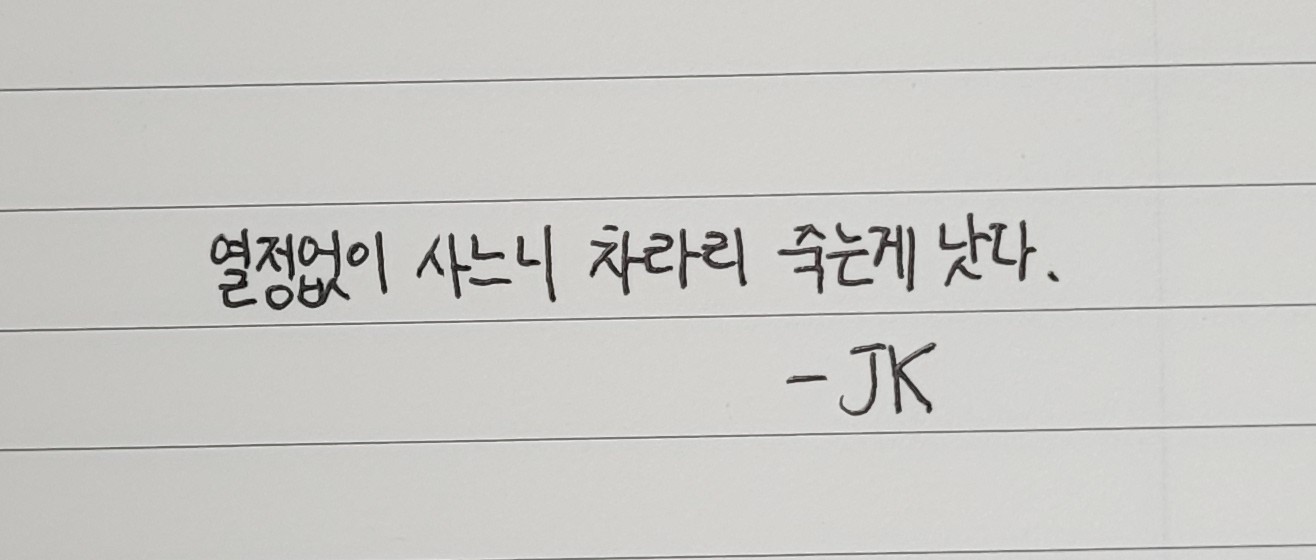 열정없이 사느니 차라리 죽는게 낫다.
-JK